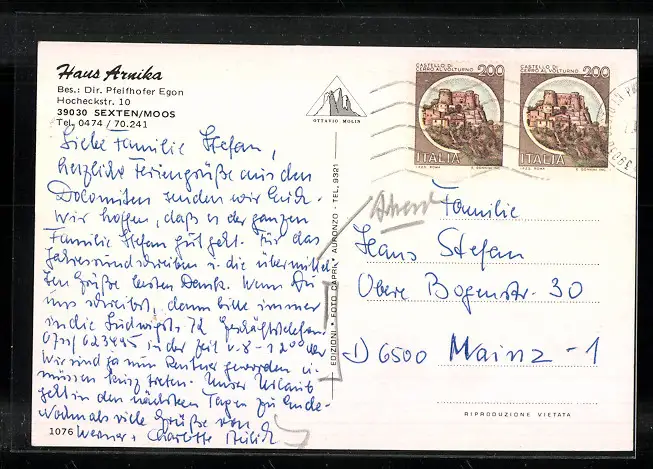 Haus Arnika
Bes.: Dir. Pfeifhofer Egon
Hocheckstr. 10
39030 SEXTEN/MOOS
Tel. 0474 / 70.241
Liebe Familie Stefan,
herzliche Feriengrüße aus den
Dolomiten senden wir Euch.
Wir hoffen, daß es der ganzen
Familie Stefan gut geht. Für das
Jahresrundschreiben u. die übermittel-
ten Grüße besten Dank. Wenn Du
uns schreibst, dann bitte immer
in die Ludwigstr. 72
0711/623495 in der Zeit v. 8-12 00
Wir sind ja nun Rentner geworden u.
müssen kurz treten. Unser Urlaub
geht in den nächsten Tagen zu Ende.
Nochmals viele Grüße von
Werner + Charlotte
1076
OTTAVIO MOLIN
EDIZIONI • FOTO CAPRI • AURONZO - TEL. 9321
CASTELLO DI
CERRO AL VOLTURNO
200
ITALIA
CASTELLO DI
CERRO AL VOLTURNO
200
ITALIA
Familie
Hans Stefan
Obere Bogenstr. 30
D 6500 Mainz-1
RIPRODUZIONE VIETATA